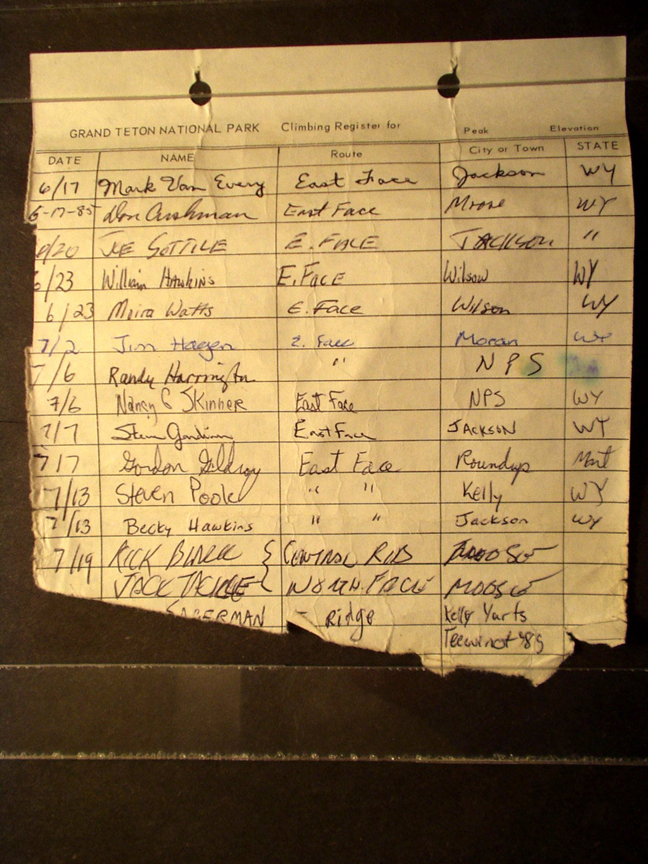 GRAND TETON NATIONAL PARK Climbing Register for Peak Elevation
DATE NAME Route City or Town STATE
6/17 Mark Van Every East Face Jackson WY
6-17-85 Don Cushman East Face Moose WY
6/20 JOE SOTTILE E. FACE JACKSON "
6/23 William Hawkins E. Face Wilson WY
6/23 Moira Watts E. Face Wilson WY
7/2 Jim Hagen E. Face Moran WY
7/6 Randy Harrington " NPS
7/6 Nancy C Skinner East Face NPS WY
7/7 East Face JACKSON WY
7/7 Gordon East Face Roundup Mont
7/13 Steven Poole " " Kelly WY
7/13 Becky Hawkins " " Jackson WY
7/19 RICK BLACK { CENTRAL RIB MOOSE
JACK TACKLE NORTH FACE MOOSE
SABERMAN ridge Kelly Yurts
Teewinot